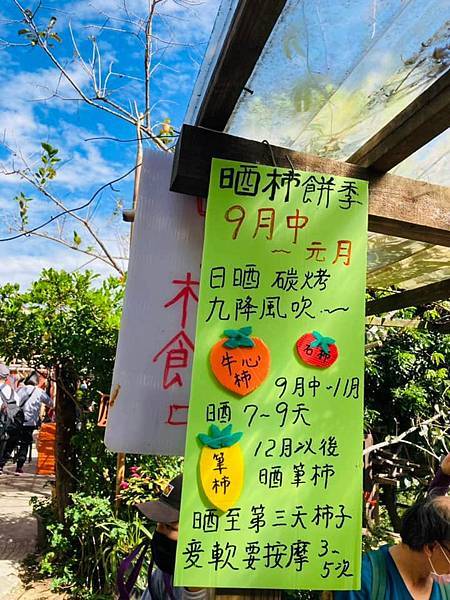 晒柿餅季
9月中
~元月
日晒 碳烤
九降風吹~
牛心柿
石柿
9月中~11月
晒7~9天
筆柿
12月以後
晒筆柿
晒至第三天柿子
变軟要按摩3~5次
木
食